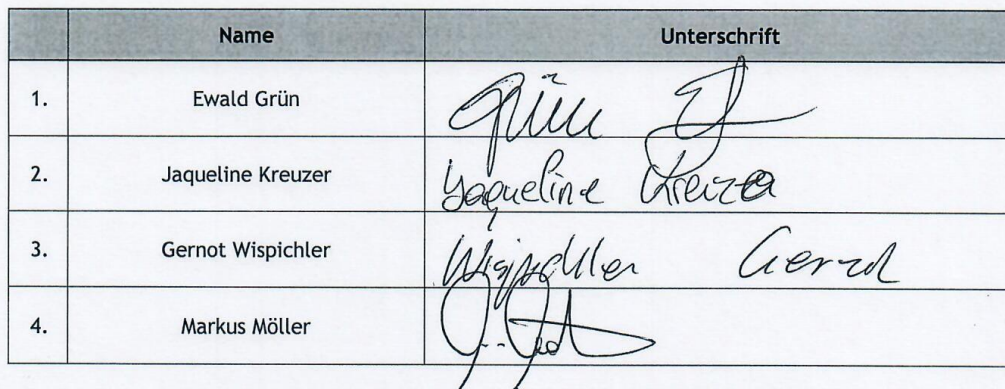 Name Unterschrift
1. Ewald Grün Grün E
2. Jaqueline Kreuzer Jaqueline Kreuzer
3. Gernot Wispichler Wispichler Gernot
4. Markus Möller